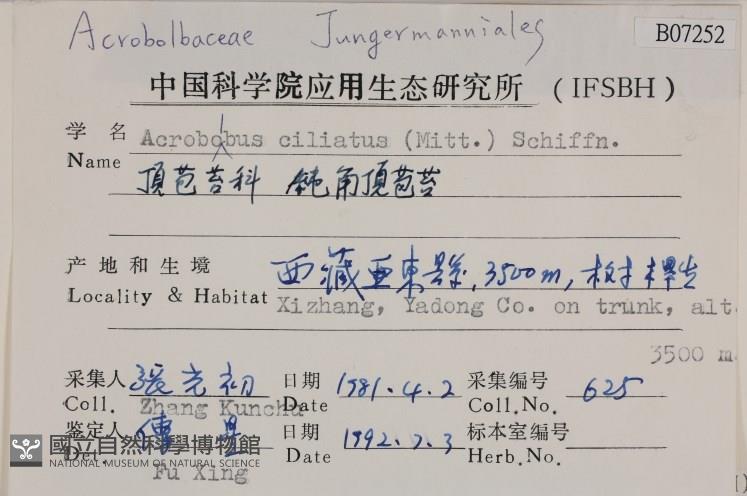 Acrobolbaceae Jungermanniales
B07252
中国科学院应用生态研究所 (IFSBH)
学 名 Acrobobus ciliatus (Mitt.) Schiffn.
l
Name 頂苞苔科 鈍角頂苞苔
产地和生境 西藏亜東縣, 3500m, 树桿生
Locality & Habitat Xizhang, Yadong Co. on trunk, alt.
3500 m
采集人 張光初 日期 1981.4.2 采集编号 625
Coll. Zhang Kunchu Date Coll.No.
鉴定人 傅星 日期 1992.7.3 标本室编号
Det. Fu Xing Date Herb.No.
國立自然科學博物館
NATIONAL MUSEUM OF NATURAL SCIENCE